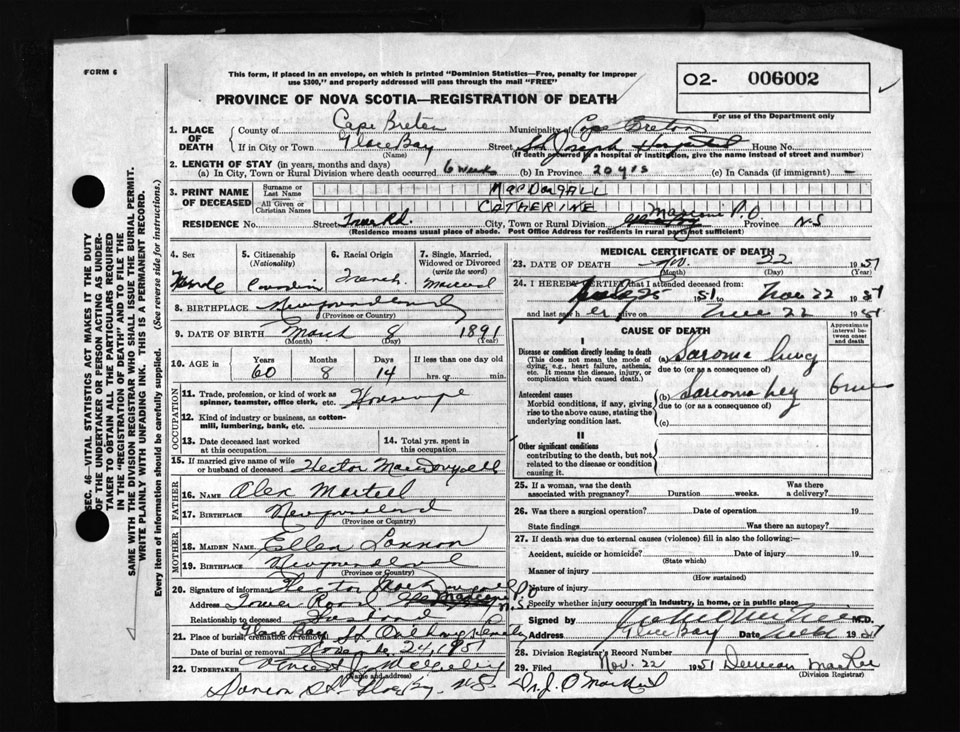 FORM 6
This form, if placed in an envelope, on which is printed "Dominion Statistics—Free, penalty for improper
use $300," and properly addressed will pass through the mail "FREE"
O2- 006002
For use of the Department only
PROVINCE OF NOVA SCOTIA—REGISTRATION OF DEATH
1. PLACE OF DEATH { County of Cape Breton Municipality of Cape Breton
If in City or Town Glace Bay (Name) Street St. Joseph Hospital House No.
(If death occurred in a hospital or institution, give the name instead of street and number)
2. LENGTH OF STAY (in years, months and days)
(a) In City, Town or Rural Division where death occurred 6 weeks (b) In Province 20 yrs (c) In Canada (if immigrant) —
3. PRINT NAME OF DECEASED { Surname or Last Name MACDOUGALL
All Given or Christian Names CATHERINE
RESIDENCE No. Street Tower Rd. City, Town or Rural Division P.O. Province N-S
(Residence means usual place of abode. Post Office Address for residents in rural parts not sufficient)
4. Sex Female
5. Citizenship (Nationality) Canadian
6. Racial Origin French
7. Single, Married, Widowed or Divorced (write the word) Married
8. BIRTHPLACE Newfoundland
(Province or Country)
9. DATE OF BIRTH March 8 1891
(Month) (Day) (Year)
10. AGE in Years 60 Months 8 Days 14 If less than one day old hrs. or min.
OCCUPATION
11. Trade, profession, or kind of work as spinner, teamster, office clerk, etc. Housewife
12. Kind of industry or business, as cotton-mill, lumbering, bank, etc.
13. Date deceased last worked at this occupation
14. Total yrs. spent in this occupation
15. If married give name of wife or husband of deceased Hector MacDougall
FATHER
16. NAME Alex Martell
17. BIRTHPLACE Newfoundland
(Province or Country)
MOTHER
18. MAIDEN NAME Ellen Lannon
19. BIRTHPLACE Newfoundland
(Province or Country)
20. Signature of informant Hector MacDougall
Address Tower Road P.O. N.S
Relationship to deceased Husband
21. Place of burial, cremation or removal Glace Bay St.
Date of burial or removal November 24, 1951
22. UNDERTAKER Vincent J.
(Name and address)
St. Glace Bay, N.S. Dr. J. O
MEDICAL CERTIFICATE OF DEATH
23. DATE OF DEATH Nov. 22 1951
(Month) (Day)
24. I HEREBY CERTIFY that I attended deceased from
25 1951 to Nov 22 1951
and last saw her alive on 22 1951
CAUSE OF DEATH
Approximate interval between onset and death
I
Disease or condition directly leading to death (This does not mean the mode of dying, e.g., heart failure, asthenia, etc. It means the disease, injury, or complication which caused death.)
(a) Sarcoma lung
due to (or as a consequence of)
Antecedent causes
Morbid conditions, if any, giving rise to the above cause, stating the underlying condition last.
(b) Sarcoma leg 6
due to (or as a consequence of)
(c)
II
Other significant conditions contributing to the death, but not related to the disease or condition causing it.
25. If a woman, was the death associated with pregnancy? Duration weeks. Was there a delivery?
26. Was there a surgical operation? Date of operation 19
State findings Was there an autopsy?
27. If death was due to external causes (violence) fill in also the following:—
Accident, suicide or homicide? Date of injury 19
(State which)
Manner of injury
(How sustained)
Nature of injury
Specify whether injury occurred in industry, in home, or in public place
Signed by M.D.
Address Glace Bay Date 1951
28. Division Registrar's Record Number
29. Filed Nov. 22 1951 Duncan MacRae
(Division Registrar)
SEC. 46—VITAL STATISTICS ACT MAKES IT THE DUTY
OF THE UNDERTAKER OR PERSON ACTING AS UNDERTAKER
TO OBTAIN ALL THE PARTICULARS REQUIRED
IN THE "REGISTRATION OF DEATH" AND TO FILE THE
SAME WITH THE DIVISION REGISTRAR WHO SHALL ISSUE THE BURIAL PERMIT.
WRITE PLAINLY WITH UNFADING INK. THIS IS A PERMANENT RECORD.
Every item of information should be carefully supplied. (See reverse side for instructions.)